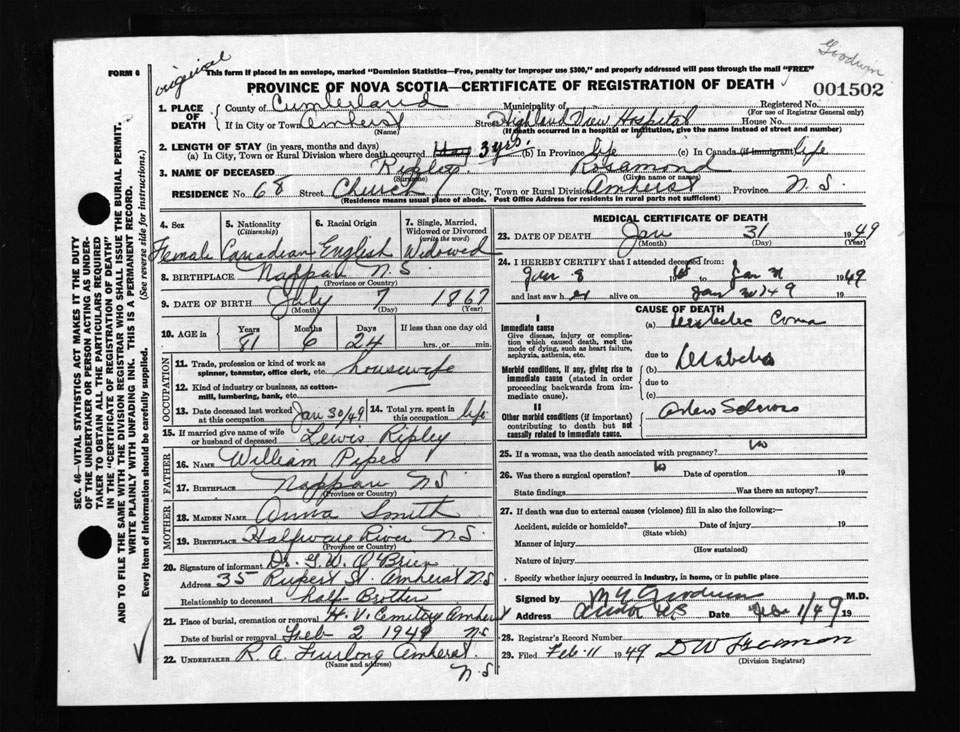 Goodwin
original
FORM 6
This form if placed in an envelope, marked "Dominion Statistics—Free, penalty for improper use $300," and properly addressed will pass through the mail "FREE"
PROVINCE OF NOVA SCOTIA—CERTIFICATE OF REGISTRATION OF DEATH
001502
1. PLACE OF DEATH
County of Cumberland Municipality of Registered No.
(For use of Registrar General only)
If in City or Town Amherst Street Highland View Hospital House No.
(Name) (If death occurred in a hospital or institution, give the name instead of street and number)
2. LENGTH OF STAY (in years, months and days)
(a) In City, Town or Rural Division where death occurred 3 yrs. (b) In Province life (c) In Canada (if immigrant) life
3. NAME OF DECEASED Ripley Rosamond
(Surname) (Given name or names)
RESIDENCE No. 68 Street Church City, Town or Rural Division Amherst Province N.S.
(Residence means usual place of abode. Post Office Address for residents in rural parts not sufficient)
4. Sex 5. Nationality (Citizenship) 6. Racial Origin 7. Single, Married, Widowed or Divorced (write the word)
Female Canadian English Widowed
8. BIRTHPLACE Nappan N.S
(Province or Country)
9. DATE OF BIRTH July 7 1867
(Month) (Day) (Year)
10. AGE in Years Months Days If less than one day old
81 6 24 hrs., or min.
OCCUPATION
11. Trade, profession or kind of work as spinner, teamster, office clerk, etc. housewife
12. Kind of industry or business, as cotton-mill, lumbering, bank, etc.
13. Date deceased last worked at this occupation Jan 30/49 14. Total yrs. spent in this occupation life
15. If married give name of wife or husband of deceased Lewis Ripley
FATHER
16. NAME William Pipes
17. BIRTHPLACE Nappan NS
(Province or Country)
MOTHER
18. MAIDEN NAME Anna Smith
19. BIRTHPLACE Halfway River N.S.
(Province or Country)
20. Signature of informant Dr. G.W. O'Brien
Address 35 Rupert St. Amherst N.S
Relationship to deceased half-Brother
21. Place of burial, cremation or removal H.V. Cemetery Amherst
Date of burial or removal Feb 2 1949 NS
22. UNDERTAKER R.A. Furlong Amherst
(Name and address) N.S
MEDICAL CERTIFICATE OF DEATH
23. DATE OF DEATH Jan 31 1949
(Month) (Day) (Year)
24. I HEREBY CERTIFY that I attended deceased from:
Jan 8 to Jan 31 1949
and last saw her alive on Jan 30/49 19
CAUSE OF DEATH
I
Immediate cause
Give disease, injury or complication which caused death, not the mode of dying, such as heart failure, asphyxia, asthenia, etc.
(a) Diabetic Coma
due to
Morbid conditions, if any, giving rise to immediate cause (stated in order proceeding backwards from immediate cause).
(b) Diabetes
due to
(c)
II
Other morbid conditions (if important) contributing to death but not causally related to immediate cause.
Arterio Sclerosis
25. If a woman, was the death associated with pregnancy? No
26. Was there a surgical operation? No Date of operation 19
State findings Was there an autopsy?
27. If death was due to external causes (violence) fill in also the following:—
Accident, suicide or homicide? Date of injury 19
(State which)
Manner of injury
(How sustained)
Nature of injury
Specify whether injury occurred in industry, in home, or in public place
Signed by M.D.
Address Date Feb 1/49 19
28. Registrar's Record Number
29. Filed Feb. 11 1949
(Division Registrar)
SEC. 46—VITAL STATISTICS ACT MAKES IT THE DUTY
OF THE UNDERTAKER OR PERSON ACTING AS UNDER-
TAKER TO OBTAIN ALL THE PARTICULARS REQUIRED
IN THE "CERTIFICATE OF REGISTRATION OF DEATH"
AND TO FILE THE SAME WITH THE DIVISION REGISTRAR WHO SHALL ISSUE THE BURIAL PERMIT.
WRITE PLAINLY WITH UNFADING INK. THIS IS A PERMANENT RECORD.
Every item of Information should be carefully supplied. (See reverse side for instructions.)